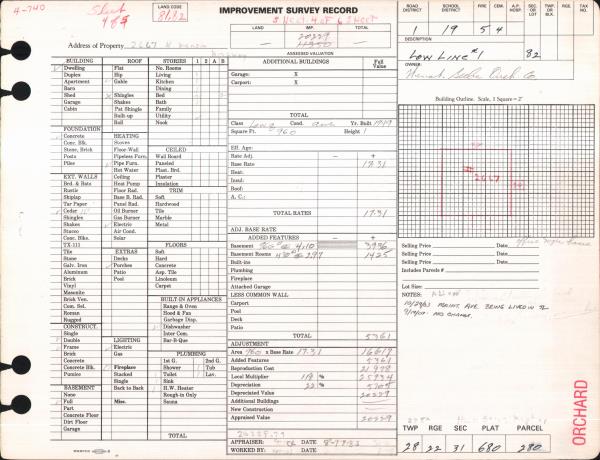 A-740
Sheet
4 of 5
LAND CODE
IMPROVEMENT SURVEY RECORD
SHEET 4 OF 6 SHEET
LAND
IMP.
TOTAL
20229
Address of Property 2667
ASSESSED VALUATION
ROAD DISTRICT
SCHOOL DISTRICT
A.P. HOSP
SEC. OR LOT
TWP. OR BLK.
RGE.
TAX NO.
19 54
DESCRIPTION
LOW LINE #1
82
OWNER
BUILDING
Dwelling
Duplex
Apartment
Barn
Shed
Garage
Cabin
ROOF
Flat
Hip
Gable
Shingles
Shakes
Pat Shingle
Built-up
Roll
STORIES 1 2 A B
No. Rooms
Living
Kitchen
Dining
Bed
Bath
Family
Utility
Nook
FOUNDATION
Concrete
Conc. Blk.
Stone, Brick
Posts
Piles
HEATING
Stoves
Floor-Wall
Pipeless Furn.
Pipe Furn.
Hot Water
Ceiling
Heat Pump
Floor Rad.
Base B. Rad.
Panel Rad.
Oil Burner
Gas Burner
Electric
Air Cond.
Solar
CEILED
Wall Board
Paneled
Plast. Brd.
Plaster
Insulation
TRIM
Soft
Hardwood
Tile
Marble
Metal
EXT. WALLS
Brd. & Batts
Rustic
Shiplap
Tar Paper
Cedar
Shingles
Shakes
Stucco
Conc. Blks.
TX-111
Tile
Galv. Iron
Aluminum
Brick
Vinyl
Masonite
Brick Ven.
Com. Sel.
Roman
Rugged
EXTRAS
Decks
Porches
Patio
Pool
FLOORS
Soft
Hard
Concrete
Asp. Tile
Linoleum
Carpet
BUILT-IN APPLIANCES
Range & Oven
Hood & Fan
Garbage Disp.
Dishwasher
Inter Com.
Bar-B-Que
CONSTRUCT.
Single
Double
Frame
Brick
Concrete
Concrete Blk.
Pumice
LIGHTING
Electric
Gas
Fireplace
Stacked
Single
Back to Back
Misc.
PLUMBING
1st G. 2nd G.
Shower Tub
Toilet Lav.
Sink
H.W. Heater
Rough-in Only
Sauna
BASEMENT
None
Full
Part
Concrete Floor
Dirt Floor
Garage
TOTAL
ADDITIONAL BUILDINGS
Full Value
Garage: X
Carport: X
TOTAL
Class Cond. Yr. Built 1979
Square Ft. 960 Height 1
Eff. Age:
Rate Adj.
Base Rate 17.31
Heat:
Insul:
Roof:
A. C.:
TOTAL RATES 17.31
ADJ. BASE RATE
ADDED FEATURES
Basement 960 @ 4.10 3936
Basement Rooms 480 @ 2.97 1425
Built-ins
Plumbing
Fireplace
Attached Garage
LESS COMMON WALL
Carport
Pool
Deck
Patio
TOTAL 5361
ADJUSTMENT
Area 960 x Base Rate 17.31 16617
Added Features 5361
Reproduction Cost 21978
Local Multiplier 118 % 25934
Depreciation 22 % 5705
Depreciated Value 20229
Additional Buildings
New Construction
Appraised Value 20229
APPRAISER: DATE 8-17-83
WORKED BY: DATE
Building Outline. Scale, 1 Square = 2'
#2667
Selling Price Date
Selling Price Date
Selling Price Date
Includes Parcels #
Lot Size:
NOTES:
NO CHANGE.
ORCHARD
TWP RGE SEC PLAT PARCEL
28 22 31 680 280